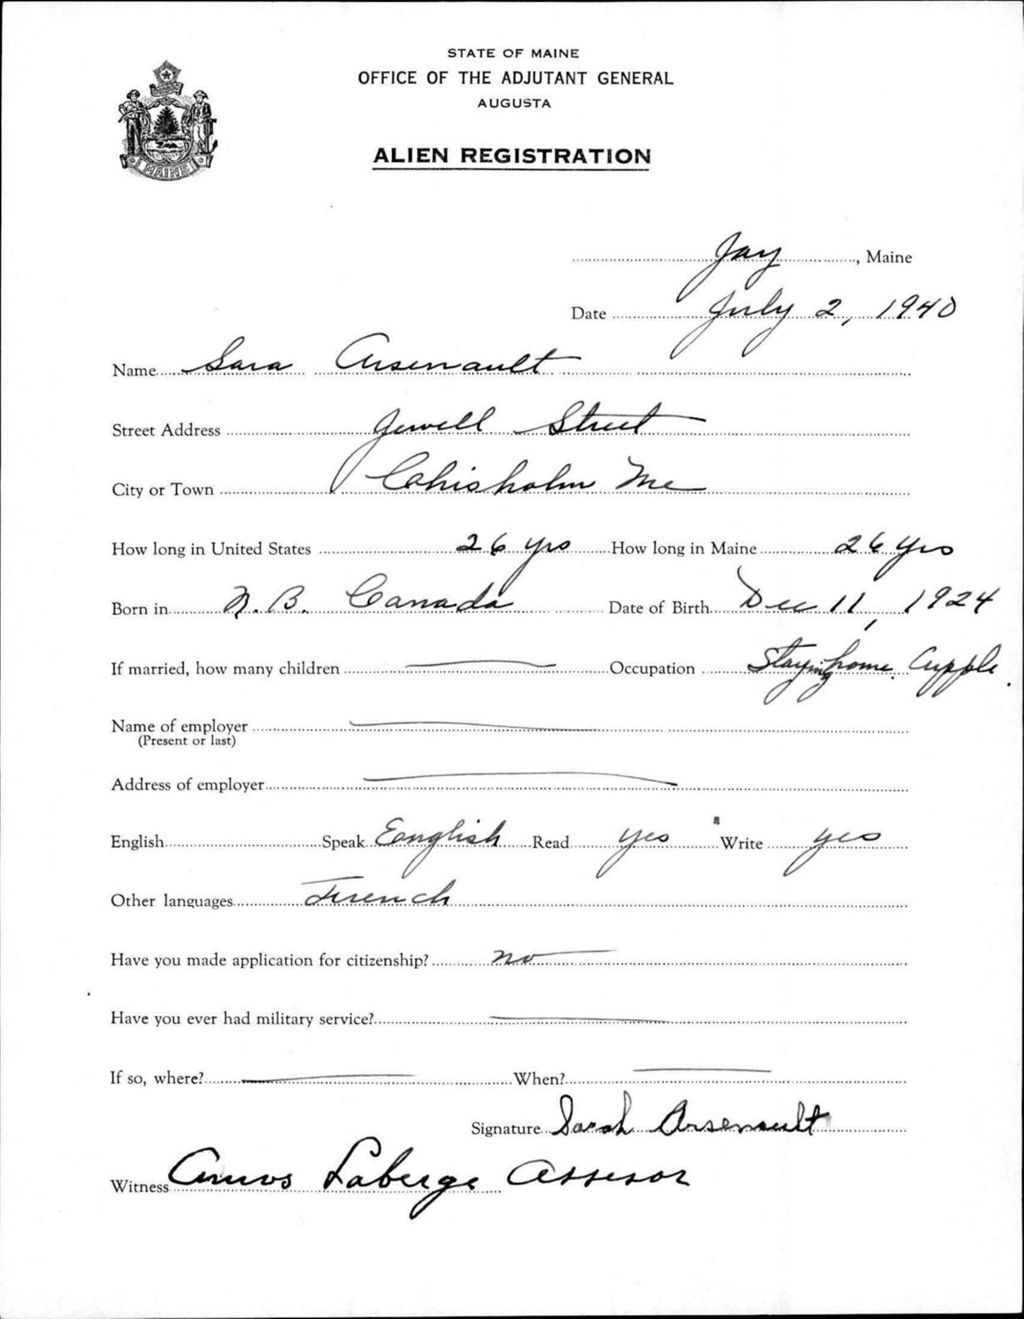 STATE OF MAINE
OFFICE OF THE ADJUTANT GENERAL
AUGUSTA
ALIEN REGISTRATION
MAINE
Jay, Maine
Date July 2, 1940
Name Sara Arsenault
Street Address Jewell Street
City or Town Chisholm Me
How long in United States 26 yrs How long in Maine 26 yrs
Born in N. B. Canada Date of Birth Dec 11, 1924
If married, how many children Occupation Staying home. Cripple.
Name of employer
(Present or last)
Address of employer
English Speak English Read yes Write yes
Other languages French
Have you made application for citizenship? no
Have you ever had military service?
If so, where? When?
Signature Sarah Arsenault
Witness Amos Laberge Assesor